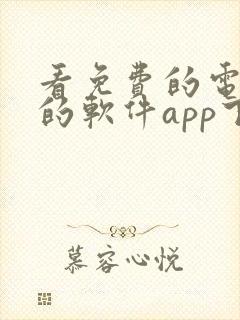 看免費的電
的軟件app下
慕容心悦